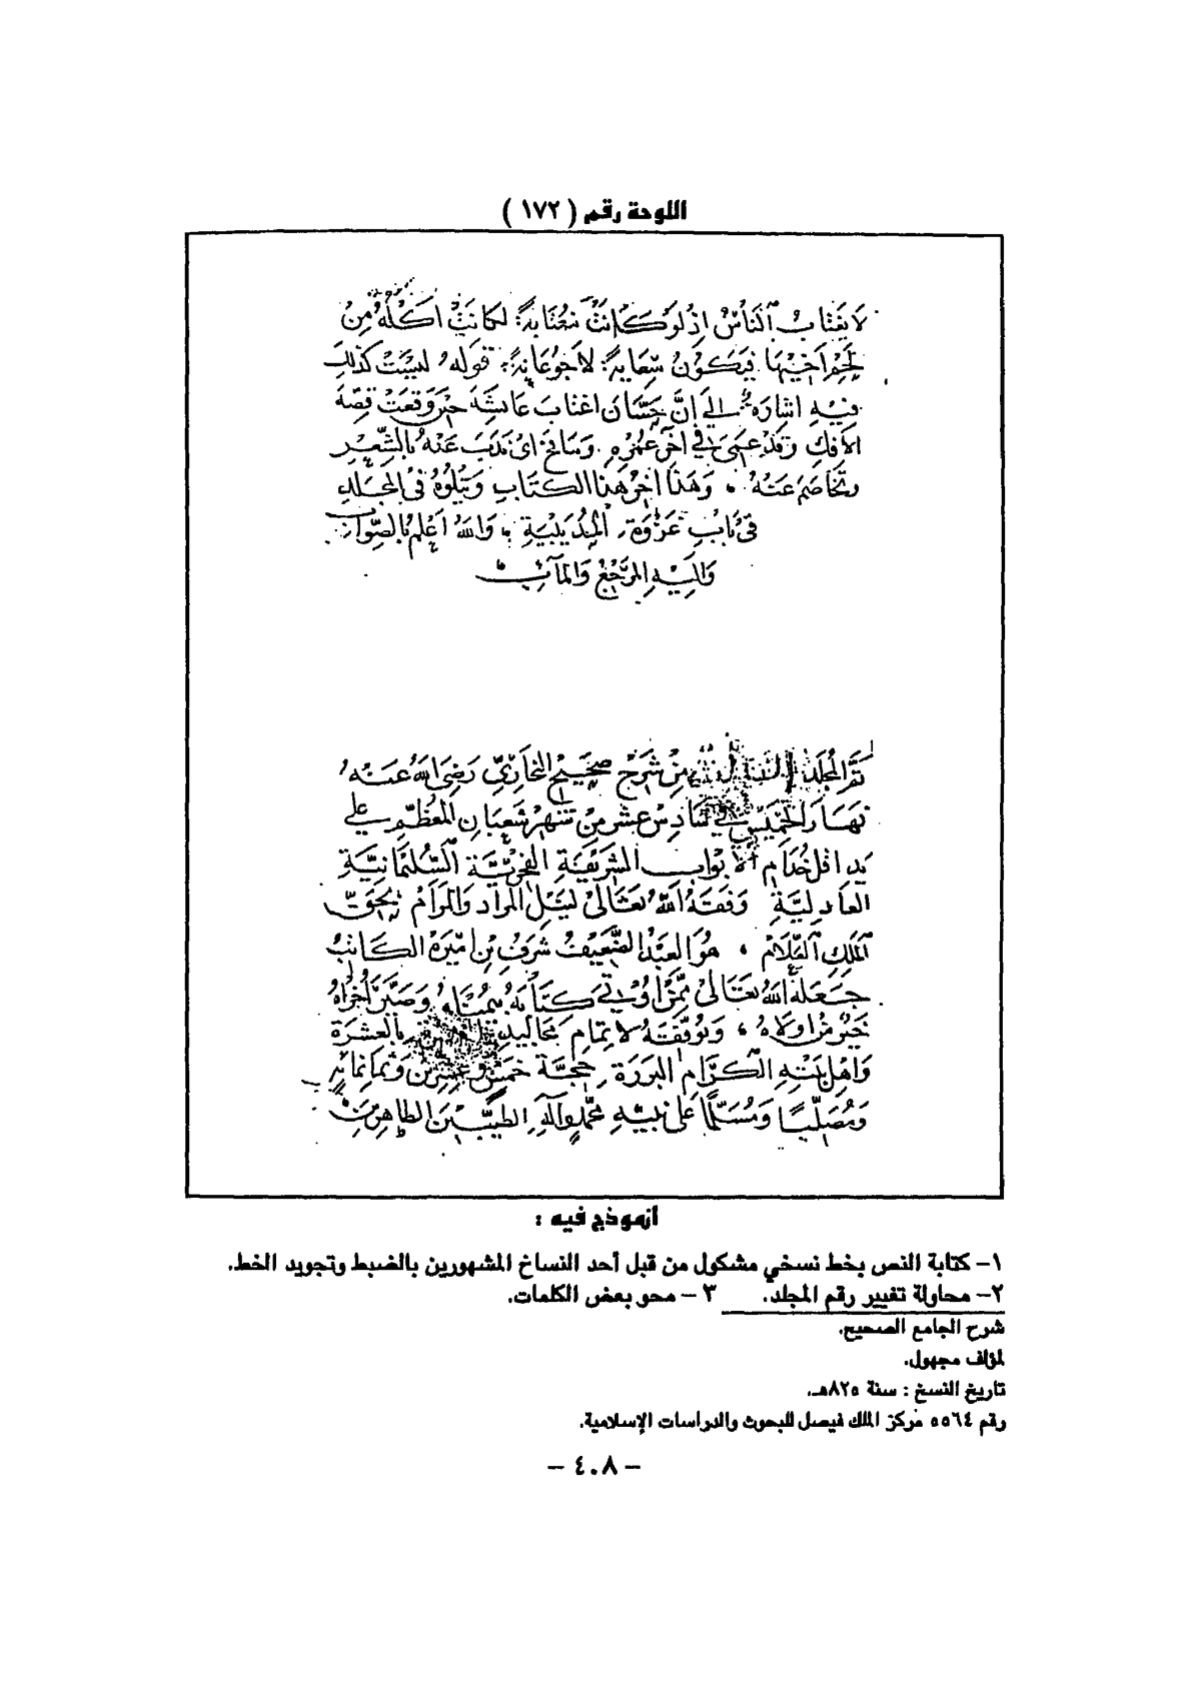 اللوحة رقم ( ١٧٢ )
لَا يَغْتَابُ ٱلنَّاسَ إِذْ لَوْ كَانَتْ مُغْتَابَةً لَكَانَتْ آكِلَةً مِنْ
لَحْمِ أَخِيْهَا فَيَكُوْنُ شَبْعَانَةً لَا جَوْعَانَةً قوله لَسْتَ كَذلِكَ
فيهِ اشارة الى إِنَّ حَسَّان اغْتَابَ عَائِشَةَ حِيْنَ وَقَعَتْ قِصَّة
الافكِ وَقَدْ عَمِيَ في آخِر عُمْرِهِ وَمَا يُنَافِحُ اىْ يَذُبُّ عَنْهُ بالشِّعْرِ
ويُخَاصِمُ عَنْهُ ۰ وَهَذَا اخِرُ هَذا الكتَابِ وَيَتْلُوْهُ فى المجَلّدِ
فىْ بَابِ غَزْوَة الْحُدَيْبِيَةِ وَاللهُ اَعْلَمُ بالصّوَابِ
وَالَيْهِ المَرْجِعُ وَالمَآبُ
تمَّ المُجَلّد مِنْ شَرْحِ صَحِيْحِ البُخَارِيِّ رَضِيَ اللهُ عَنْهُ
نَهَارَ الخَمِيْسِ فيْ سَادِسْ عشر مِنْ شَهْرِ شَعْبَانِ المُعَظَّمِ عَلي
يَدِ اقلِّ خُدَّامِ الأبْوَابِ الشّرِيْفَةِ الفَخْرِيَّةِ السُّلَيْمَانِيَّةِ
العَادِلِيَّةِ وَفَّقَهُ اللهُ تَعَالىْ لِنَيْلِ المُرَادِ وَالمَرَامْ بِحَقِّ
المَلِكِ السَّلَامْ ۰ هُوَ العَبْدُ الضَّعِيْفُ شَرَفُ بن امِيْرَهْ الكَاتِبُ
جَعَلَهُ اللهُ تَعَالىْ مِمَّنْ اُوْتيَ كِتَابَهُ بِيُمْنَاهُ وَصَيَّرَ اُخْرَاهُ
خَيْرٌ مِنْ اولَاهُ ۰ وَتَوْفِيْقَهُ لِاتْمَامِ مَجَالِيدِ بالعَشَرَة
وَاهْلِ بَيْتِهِ الكِرَامِ البَرَرَةِ حِجَّةَ خَمْسٍ وَعِشْرِيْنَ وَثَمَانمائةٍ
وَمُصَلِّيًا وَمُسَلِّمًا عَلى نبِيّهِ مُحَمّدٍ وآلهِ الطيّبِيْنَ الطاهِرِيْنَ
أنموذج فيه :
١- كتابة النص بخط نسخي مشكول من قبل أحد النساخ المشهورين بالضبط وتجويد الخط.
٢- محاولة تغيير رقم المجلد. ٣ – محو بعض الكلمات.
شرح الجامع الصحيح.
لمؤلف مجهول.
تاريخ النسخ : سنة ٨٢٥هـ.
رقم ٥٥٦٤ مركز الملك فيصل للبحوث والدراسات الإسلامية.
– ٤٠٨ –